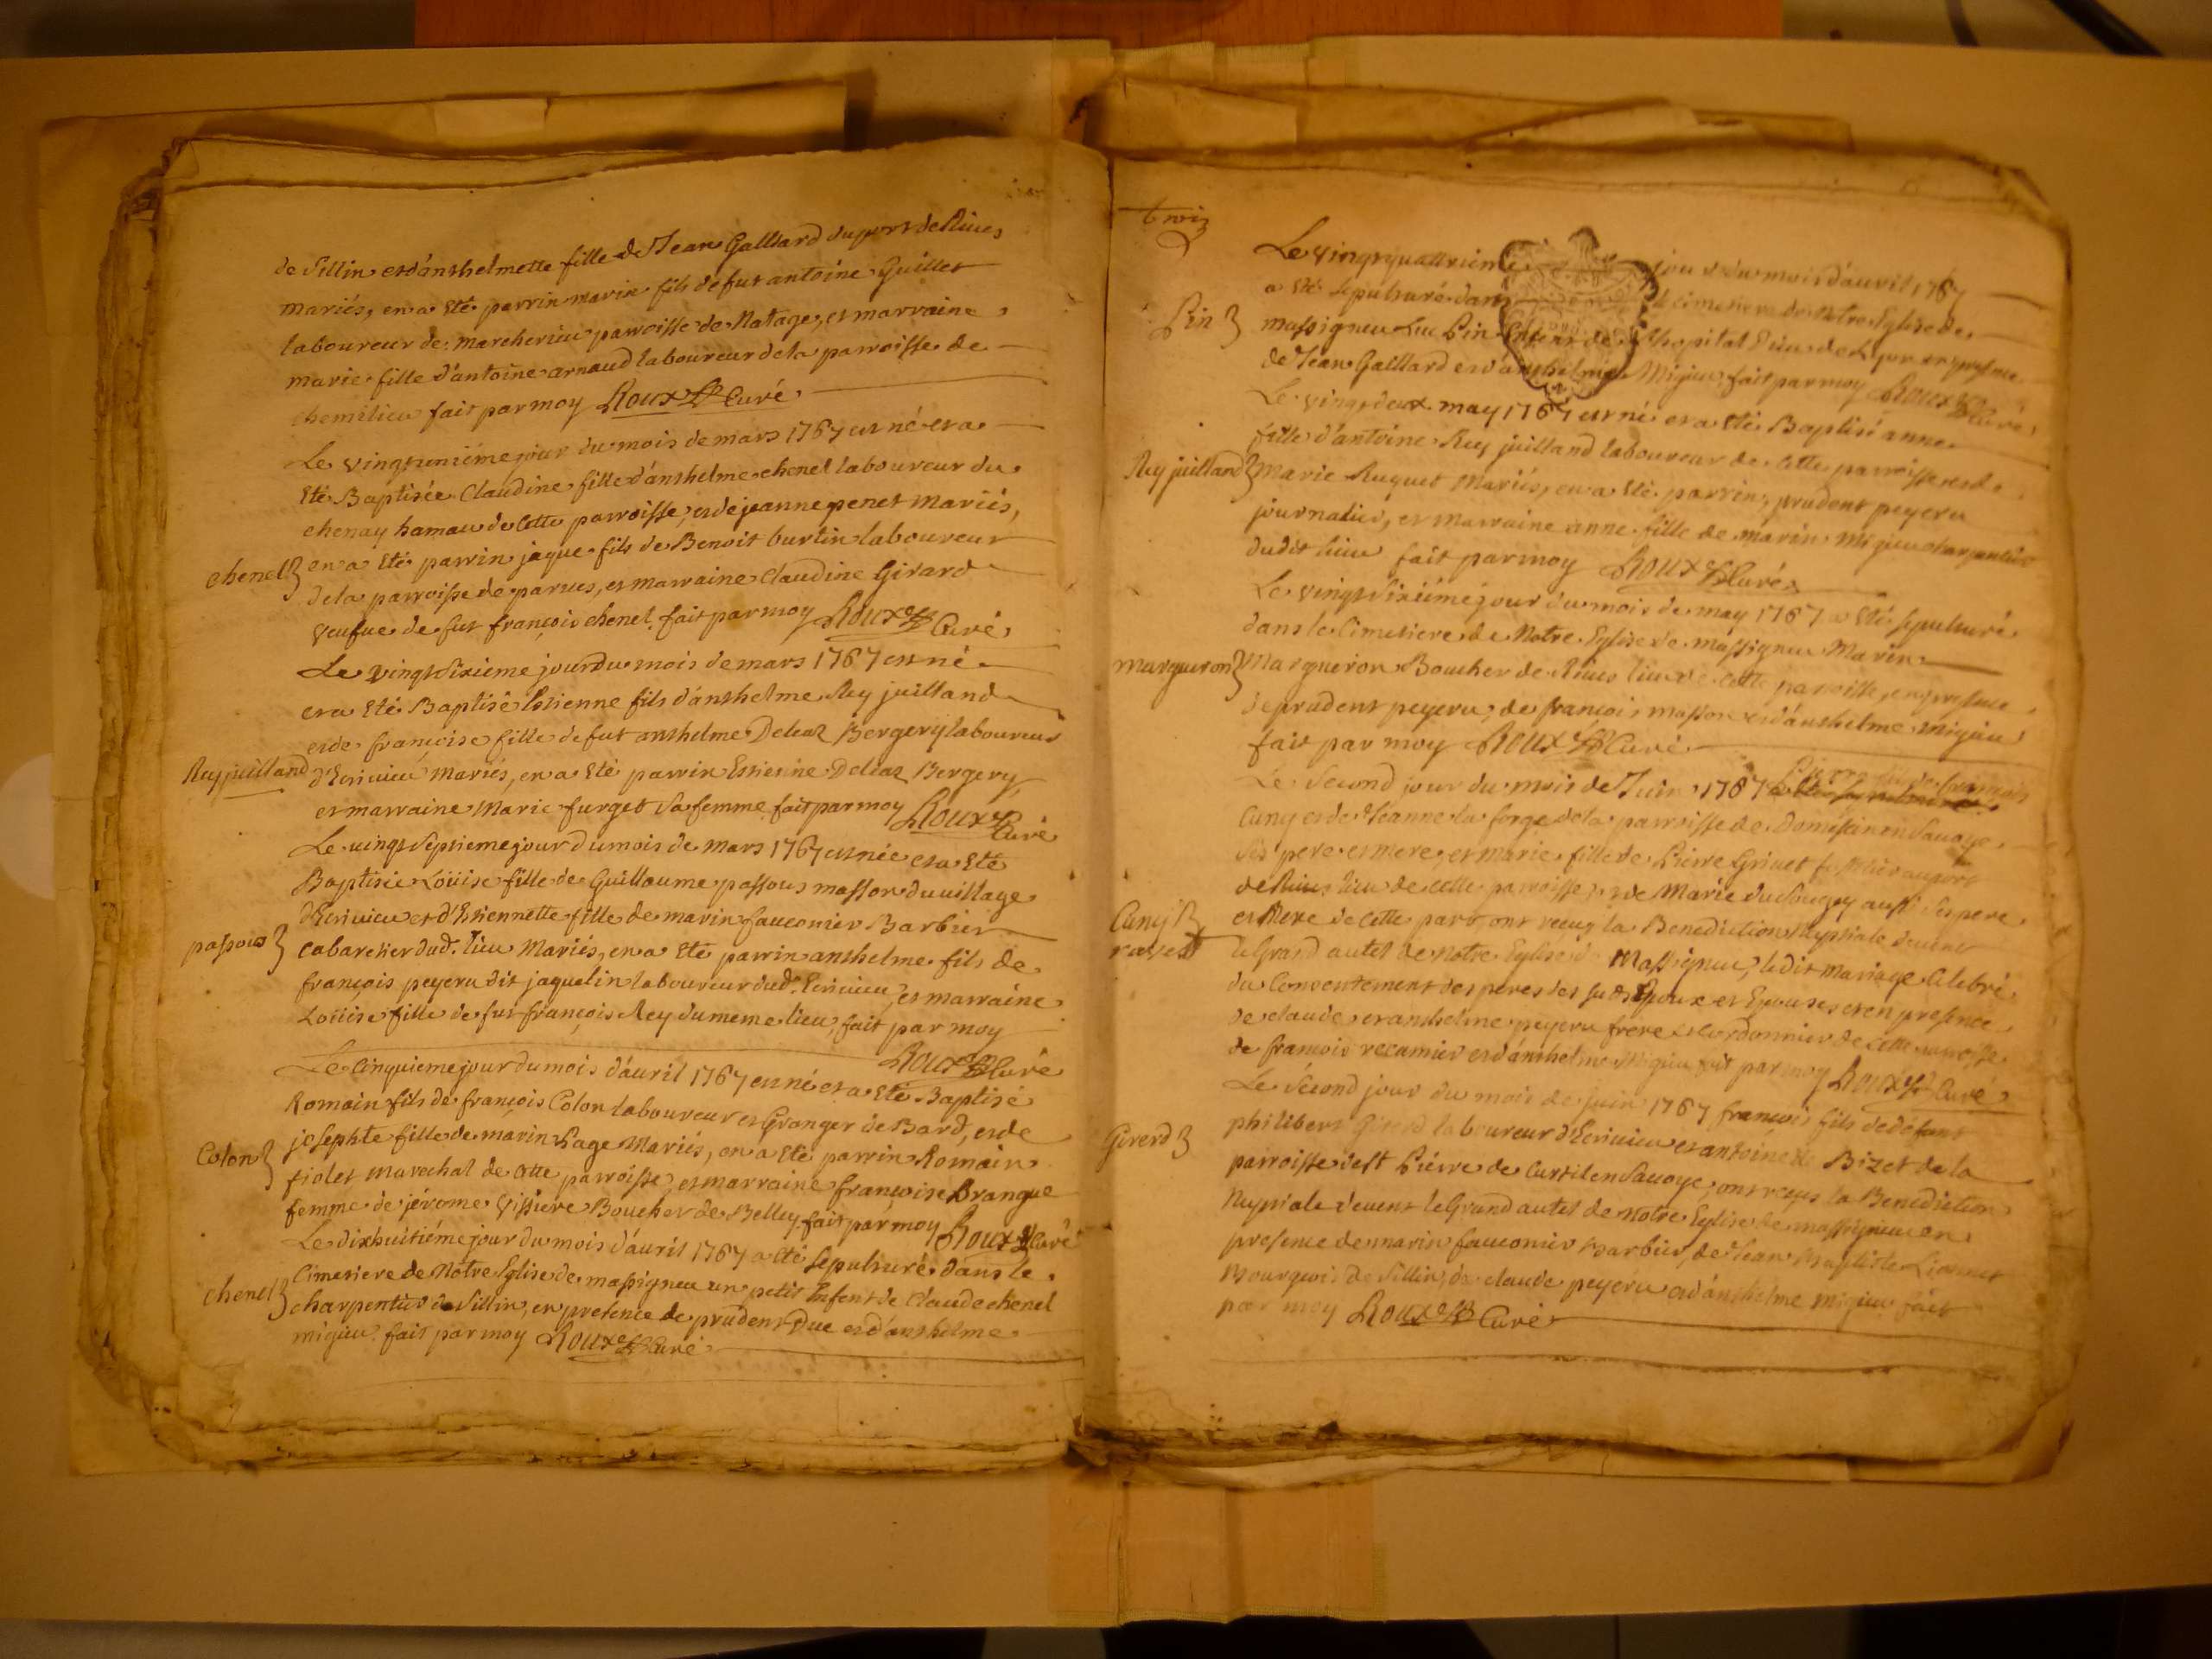 de Sillin et d'anthelmette fille de Jean Galliard du port de Rives
mariés, en a eté parrin marin fils de fut antoine Guillet
laboureur de marcherieu parroisse de Natage, et marraine
marie fille d'antoine arnaud laboureur de la parroisse de
chemilieu fait par moy Roux Curé
Le vingt uniéme jour du mois de mars 1767 est né et a
eté Baptisée Claudine fille d'anthelme chenel laboureur du
chenay hamau de cette parroisse, et de jeanne penet mariés,
chenel en a eté parrin jaque fils de Benoit burtin laboureur
de la parroisse de parves, et marraine Claudine Girard
veufve de fut françois chenel, fait par moy Roux Curé
Le vingt Sixieme jour du mois de mars 1767 est né
et a eté Baptisé Estienne fils d'anthelme Rey juilland
et de françoise fille de fut anthelme Deleaz Bergery laboureur
Rey juilland d'Ecrivieu mariés, en a eté parrin Estienne Deleaz Bergery
et marraine Marie furget Sa femme fait par moy Roux Curé
Le vingt Septieme jour du mois de mars 1767 est née et a eté
Baptisée Loüise fille de Guillaume passous masson du village
d'Ecrivieu et d'Estiennette fille de marin fauconier Barbier
cabaretier dud. lieu Mariés, en a eté parrin anthelme fils de
françois peyeru dit jaquelin laboureur dud. Ecrivieu, et marraine
Loüise fille de fut françois Rey du meme lieu, fait par moy
Roux Curé
Le Cinquieme jour du mois d'avril 1767 est né et a eté Baptisé
Romain fils de françois Colon laboureur et Granger de Bard, et de
Colon josephte fille de marin Page Mariés, en a eté parrin Romain
fiolet marechal de cette parroisse, et marraine françoise Brangue
femme de jérome Vissiere Boucher de Belley, fait par moy Roux Curé
Le dixhuitiéme jour du mois d'avril 1767 a eté sepulturé dans le
Cimetiere de Notre Eglise de massigneu un petit Enfent de Claude chenel
chenel charpentier de Sillin, en presence de prudent Duc et d'anthelme
migieu fait par moy Roux Curé
trois
Le vingt quatrieme jour du mois d'avril 1767
a eté sepulturé dans le cimetiere de Notre Eglise de
Pin massigneu Luc Pin Enfent de l'hopital Dieu de Lyon en presence
de Jean Galliard et d'anthelme Migieu, fait par moy Roux Curé
Le vingt deux may 1767 est né et a eté Baptisé anne
fille d'antoine Rey juilland laboureur de cette parroisse et de
Rey juilland Marie Ruguet Mariés, en a eté parrin prudent peyeru
journalier, et marraine anne fille de marin migieu charpentier
dudit lieu fait par moy Roux Curé
Le vingt Sixiéme jour du mois de may 1767 a eté sepulturé
dans le Cimetiere de Notre Eglise de massigneu Marin
marqueron Marqueron Boucher de Rives lieu de cette parroisse, en presence
de prudent peyeru, de françois masson et d'anthelme migieu
fait par moy Roux Curé
Le Second jour du mois de Juin 1767 Pierre fils de françois
Cuny et de Jeanne la forge de la parroisse de Domessin en Savoye
Ses pere et mere, et marie fille de Pierre Grivet au port
de Rives lieu de cette parroisse, et de Marie du Sougey aussi Ses pere
Cuny et Mere de cette part, ont reçeu la Benediction Nuptiale devent
le Grand autel de Notre Eglise de Massigneu, le dit mariage Celebré
du Consentement des peres des sud. Epoux et Epouses et en presence
de claude et anthelme peyeru frere Cordonnier de cette parroisse
de françois recamier et d'anthelme Migieu fait par moy Roux Curé
Le Second jour du mois de juin 1767 françois fils de défunt
Girerd philibert Girerd laboureur d'Ecrivieu et antoinette Bizet de la
parroisse de St Piérre de Curtil en Savoye, ont reçus la Benediction
Nuptiale devent le Grand autel de Notre Eglise de massigneu en
presence de marin fauconier Barbier, de Jean Baptiste
Bourgeois de Sillin, de claude peyeru et d'anthelme migieu fait
par moy Roux Curé